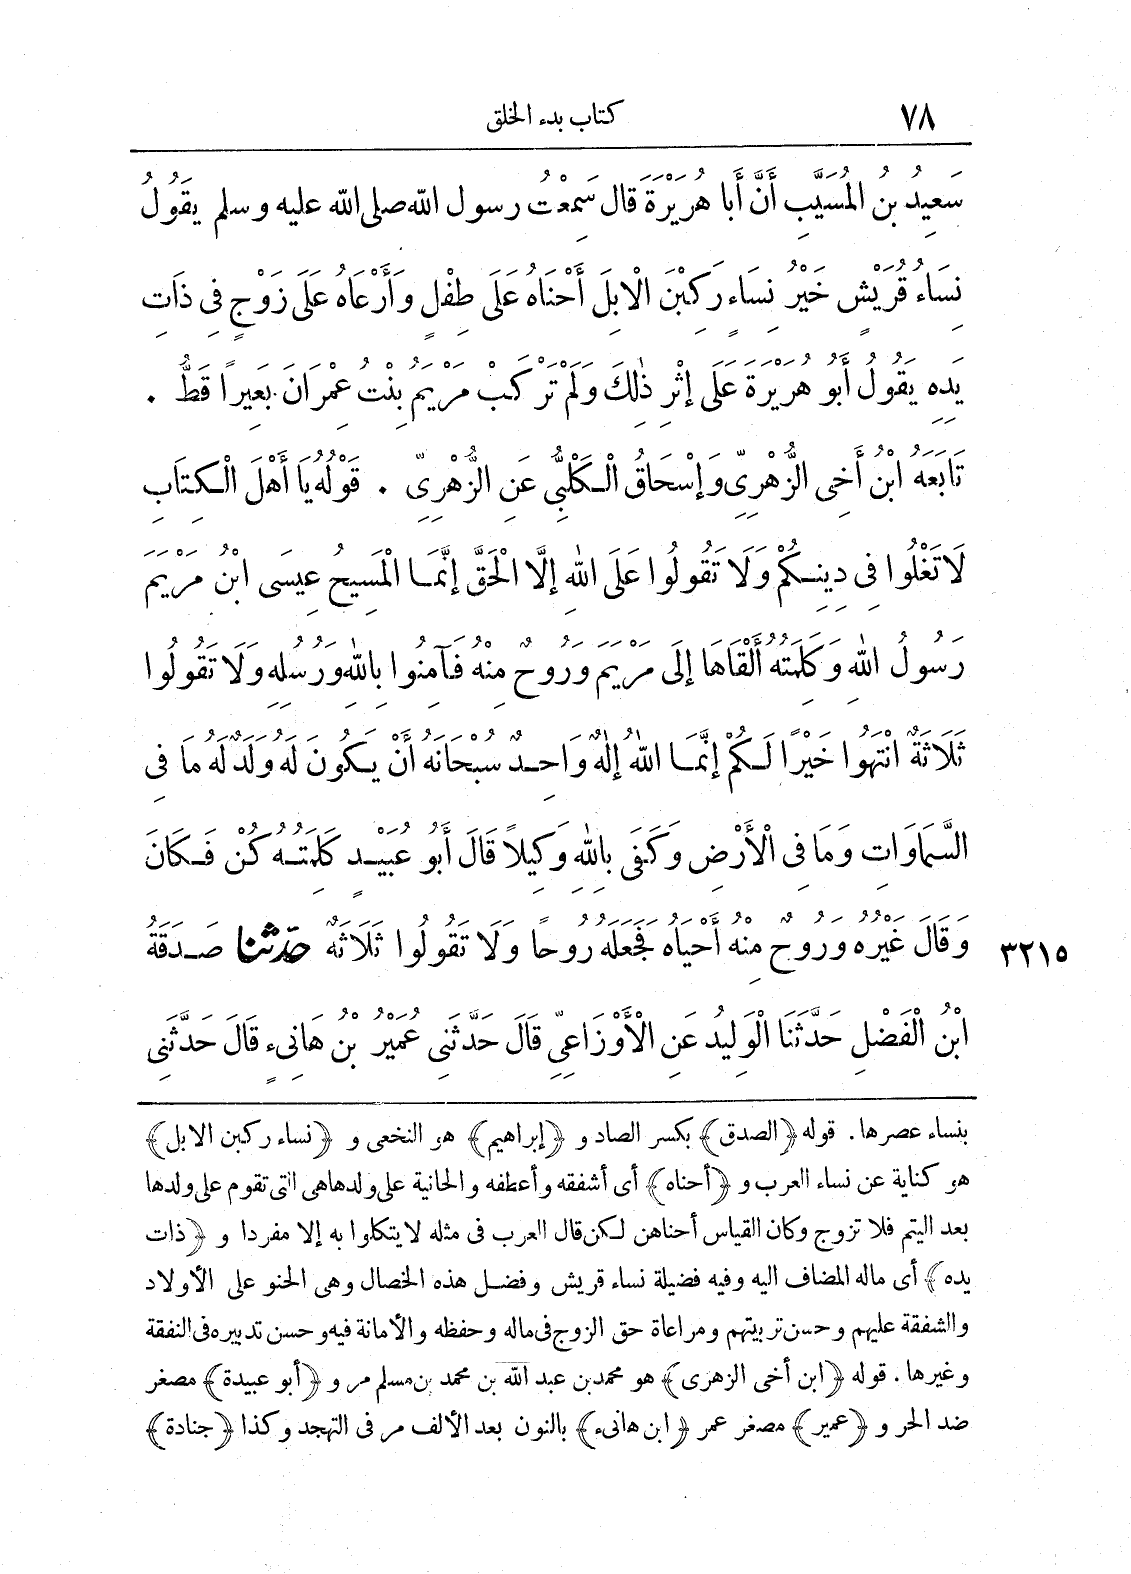 ٧٨ كتاب بدء الخلق
سَعِيدُ بنُ الْمُسَيَّبِ أَنَّ أَبَا هُرَيْرَةَ قال سَمِعْتُ رسول الله صلى الله عليه وسلم يقُولُ
نِسَاءُ قُرَيْشٍ خَيْرُ نِسَاءٍ رَكِبْنَ الْإبِلَ أَحْنَاهُ عَلَى طِفْلٍ وَأَرْعَاهُ عَلَى زَوْجٍ فِى ذَاتِ
يَدِهِ يَقُولُ أَبُو هُرَيْرَةَ عَلَى إثْرِ ذٰلِكَ وَلَمْ تَرْكَبْ مَرْيَمُ بِنْتُ عِمْرَانَ بَعِيراً قَطُّ .
تَابَعَهُ ابْنُ أَخِى الزُّهْرِىِّ وَإسْحَاقُ الْكَلْبِىُّ عَنِ الزُّهْرِىِّ . قَوْلُهُ يَا أَهْلَ الْكِتَابِ
لَا تَغْلُوا فِى دِينِكُمْ وَلَا تَقُولُوا عَلَى اللهِ إلَّا الْحَقَّ إنَّمَا الْمَسِيحُ عِيسَى ابْنُ مَرْيَمَ
رَسُولُ اللهِ وَكَلِمَتُهُ أَلْقَاهَا إلَى مَرْيَمَ وَرُوحٌ مِنْهُ فَآمِنُوا بِاللهِ وَرُسُلِهِ وَلَا تَقُولُوا
ثَلَاثَةٌ انْتَهُوا خَيْراً لَكُمْ إنَّمَا اللهُ إلٰهٌ وَاحِدٌ سُبْحَانَهُ أَنْ يَكُونَ لَهُ وَلَدٌ لَهُ مَا فِى
السَّمَاوَاتِ وَمَا فِى الْأَرْضِ وَكَفَى بِاللهِ وَكِيلاً قَالَ أَبُو عُبَيْدٍ كَلِمَتُهُ كُنْ فَكَانَ
وَقَالَ غَيْرُهُ وَرُوحٌ مِنْهُ أَحْيَاهُ فَجَعَلَهُ رُوحاً وَلَا تَقُولُوا ثَلَاثَةٌ حدثنا صَدَقَةُ ٣٢١٥
ابْنُ الْفَضْلِ حَدَّثَنَا الْوَلِيدُ عَنِ الْأَوْزَاعِىِّ قَالَ حَدَّثَنِى عُمَيْرُ بْنُ هَانِىءٍ قَالَ حَدَّثَنِى
بنساء عصرها . قوله ﴿الصدق﴾ بكسر الصاد و ﴿إبراهيم﴾ هو النخعى و ﴿نساء ركبن الابل﴾
هو كناية عن نساء العرب و ﴿أحناه﴾ أى أشفقه وأعطفه والحانية على ولدها هى التى تقوم على ولدها
بعد اليتم فلا تزوج وكان القياس أحناهن لكن قال العرب فى مثله لا يتكلوا به إلا مفردا و ﴿ذات
يده﴾ أى ماله المضاف اليه وفيه فضيلة نساء قريش وفضل هذه الخصال وهى الحنو على الأولاد
والشفقة عليهم وحسن تربيتهم ومراعاة حق الزوج فى ماله وحفظه والأمانة فيه وحسن تدبيره فى النفقة
وغيرها . قوله ﴿ابن أخى الزهرى﴾ هو محمد بن عبد الله بن محمد بن مسلم مر و ﴿أبو عبيدة﴾ مصغر
ضد الحر و ﴿عمير﴾ مصغر عمر ﴿ابن هانىء﴾ بالنون بعد الألف مر فى التهجد وكذا ﴿جنادة﴾